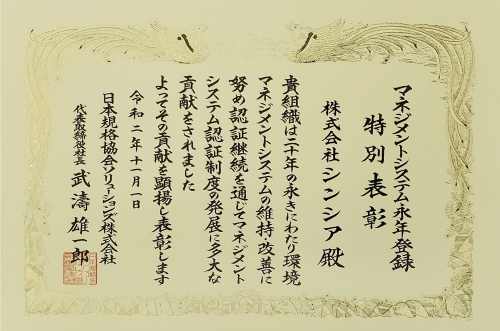 マネジメントシステム永年登録
特別表彰
株式会社 シンシア 殿
貴組織は二十年の永きにわたり環境
マネジメントシステムの維持・改善に
努め認証継続を通じてマネジメント
システム認証制度の発展に多大な
貢献をされました
よってその貢献を顕揚し表彰します
令和二年十一月一日
日本規格協会ソリューションズ株式会社
代表取締役社長 武濤 雄一郎